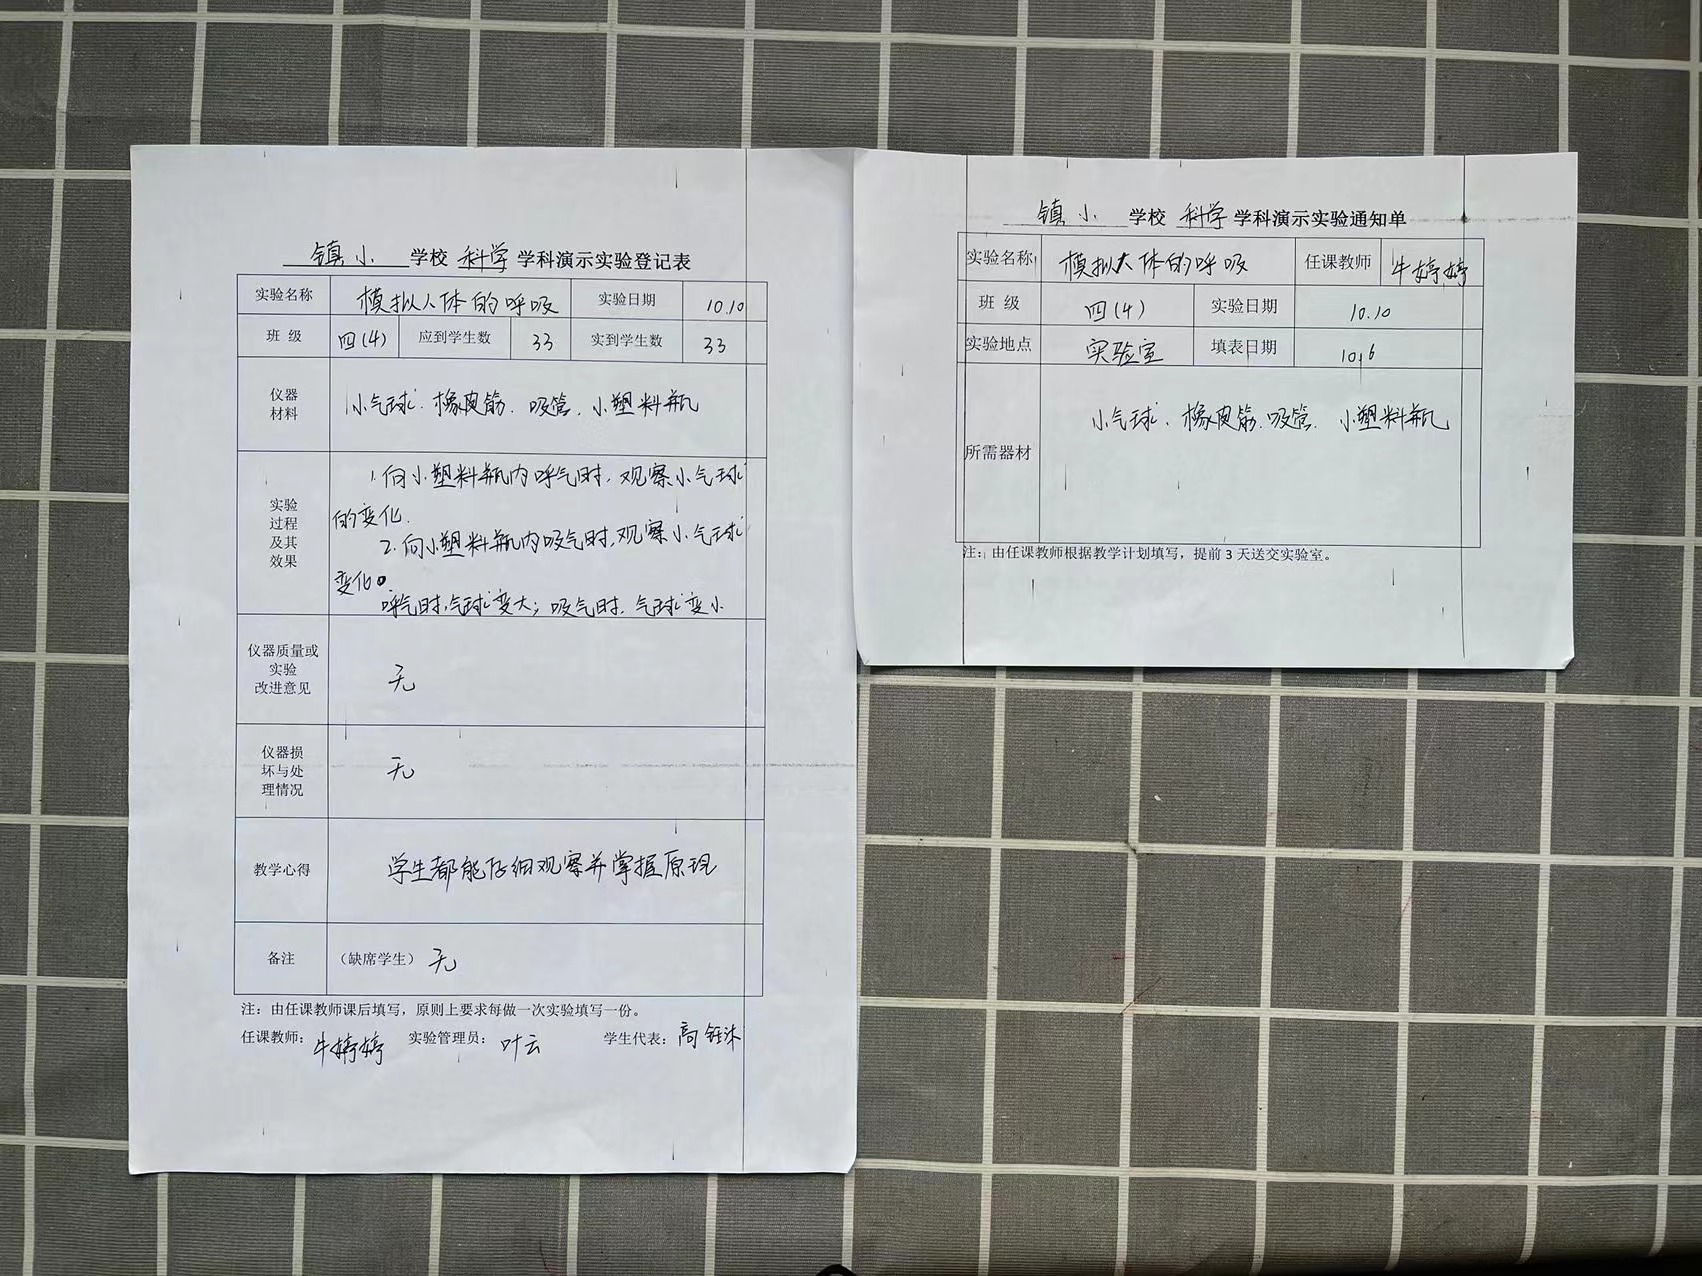 镇小 学校 科学 学科演示实验登记表
实验名称 模拟人体的呼吸 实验日期 10.10
班 级 四(4) 应到学生数 33 实到学生数 33
仪器
材料
小气球、橡皮筋、吸管、小塑料瓶
实验
过程
及其
效果
1.向小塑料瓶内呼气时,观察小气球
的变化.
2.向小塑料瓶内吸气时,观察小气球
变化。
呼气时,气球变大;吸气时,气球变小.
仪器质量或
实验
改进意见
无
仪器损
坏与处
理情况
无
教学心得 学生都能仔细观察并掌握原理
备注 (缺席学生) 无
注:由任课教师课后填写,原则上要求每做一次实验填写一份。
任课教师: 牛婷婷 实验管理员: 叶云 学生代表: 高钰沐
镇小 学校 科学 学科演示实验通知单
实验名称 模拟人体的呼吸 任课教师 牛婷婷
班 级 四(4) 实验日期 10.10
实验地点 实验室 填表日期 10.6
所需器材 小气球、橡皮筋、吸管、小塑料瓶
注:由任课教师根据教学计划填写,提前3天送交实验室。